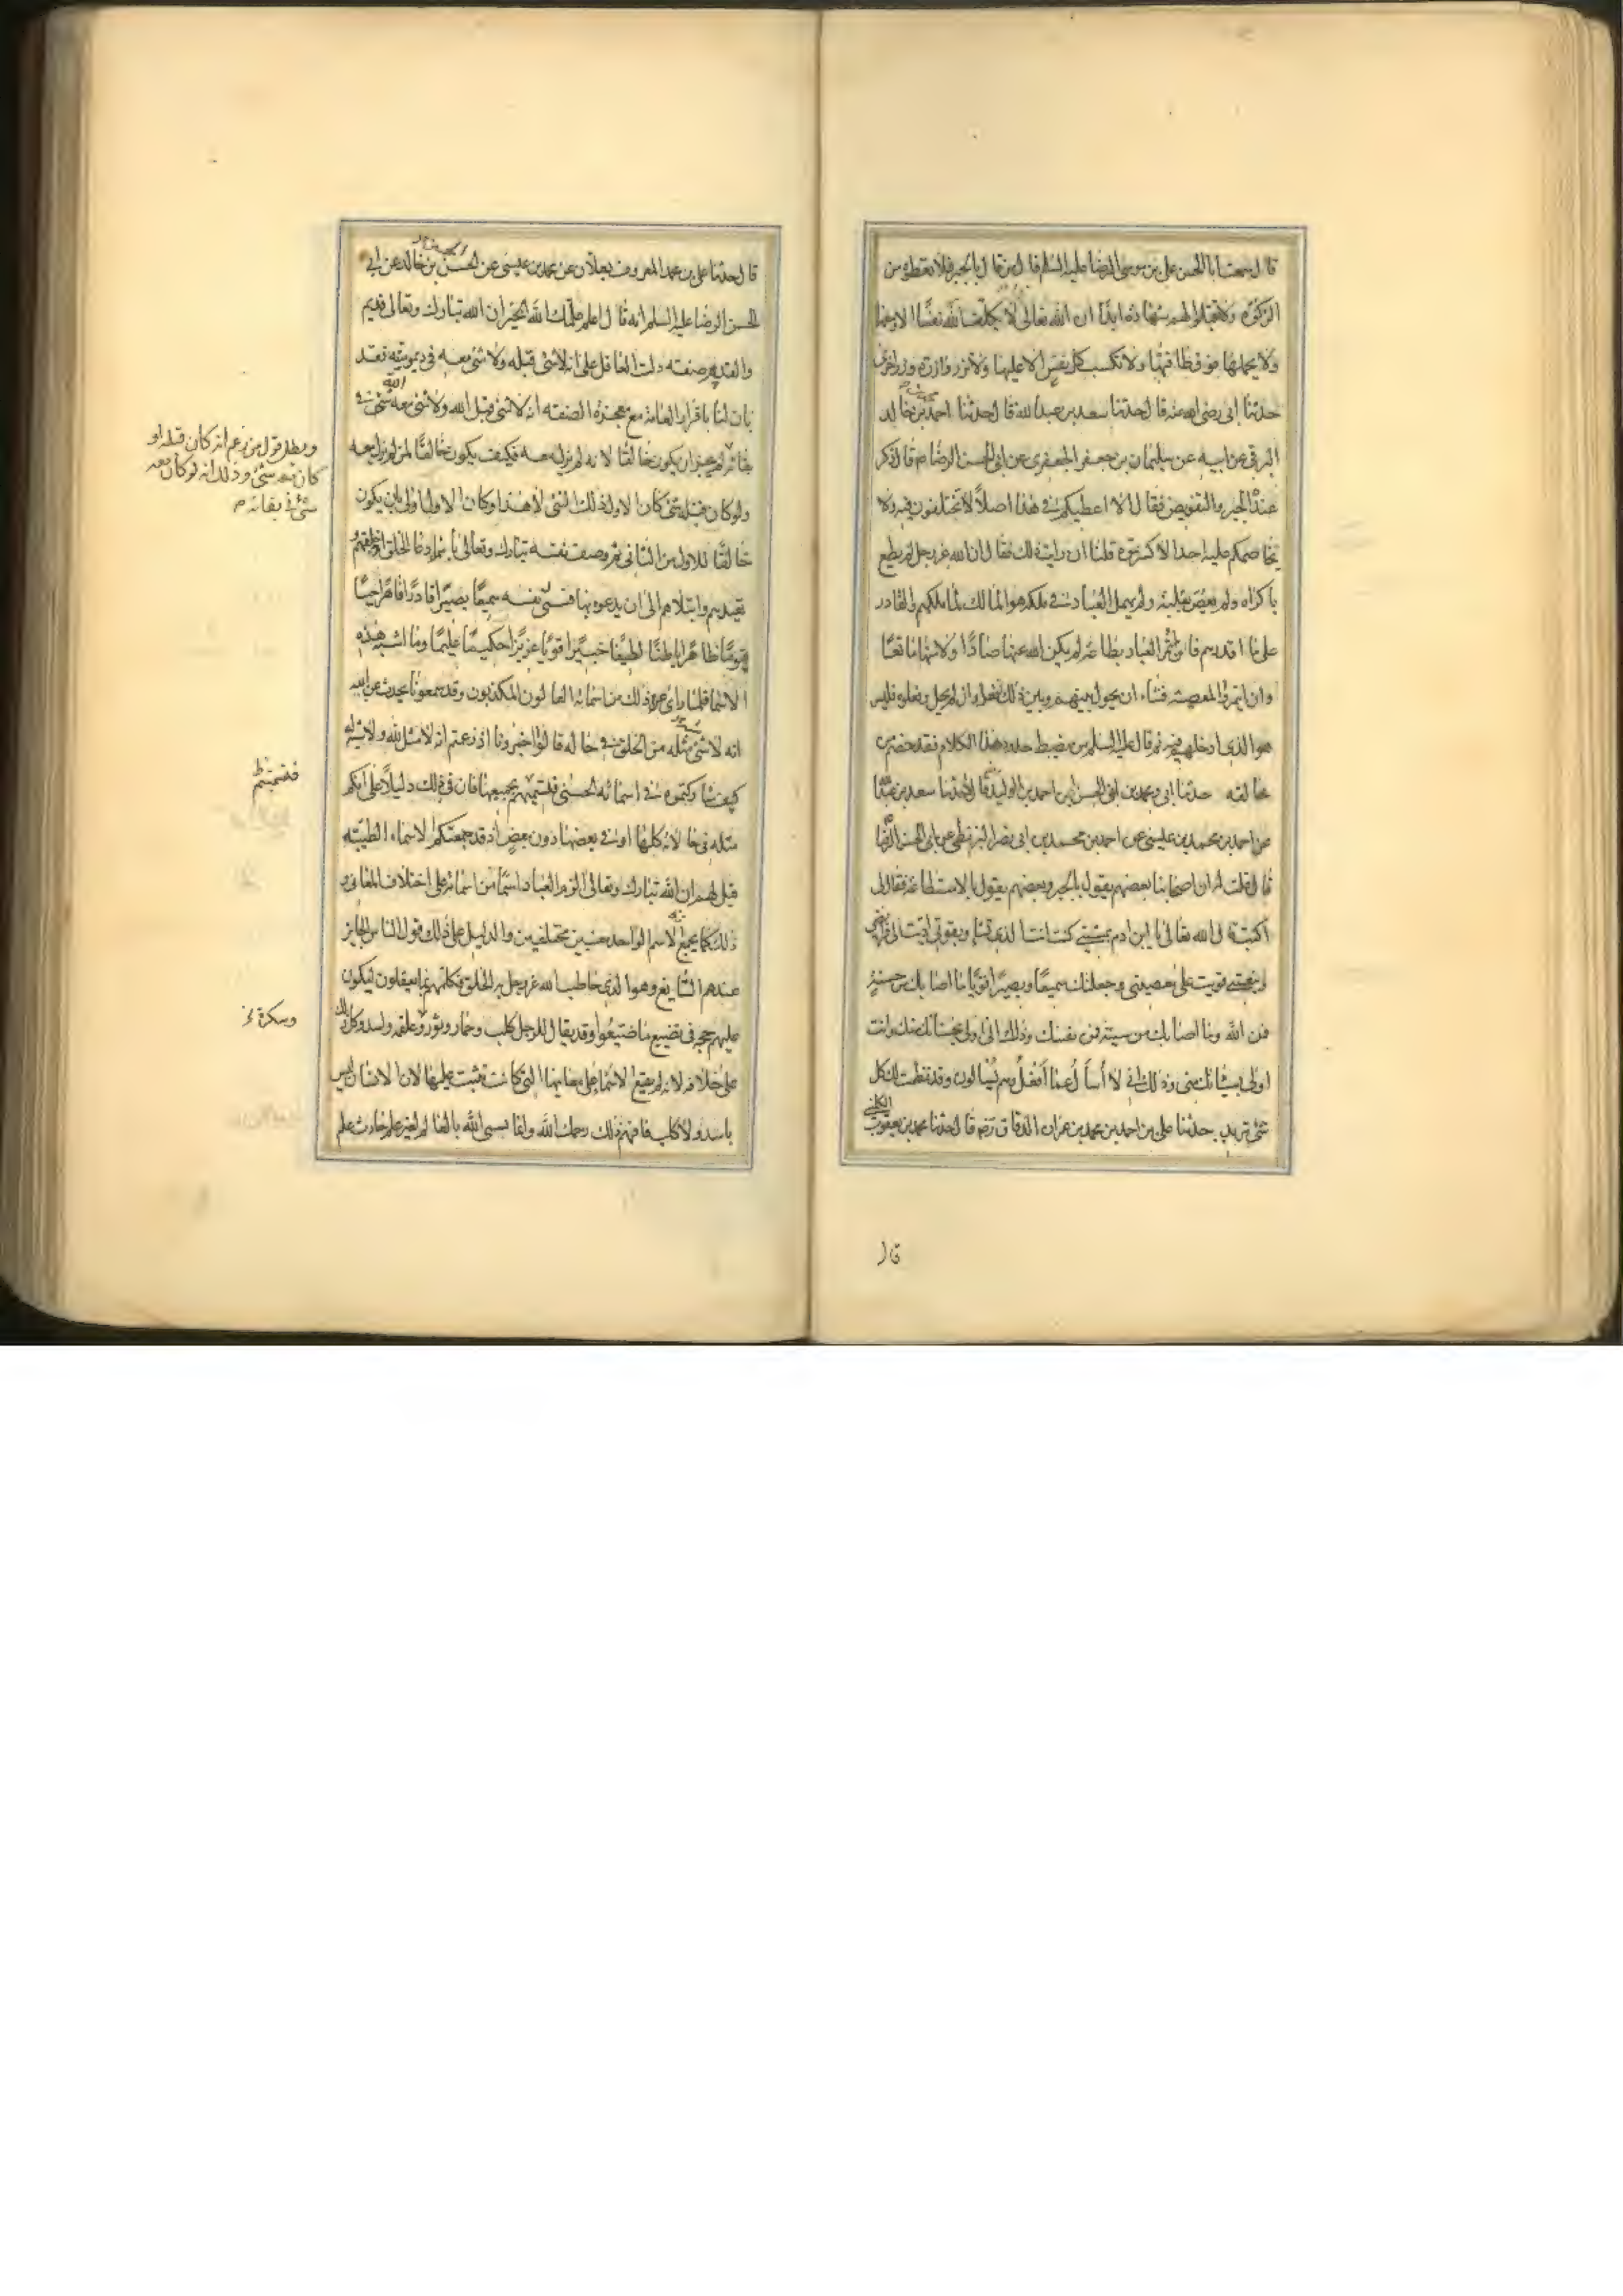 قال سمعت ابا الحسن علی بن موسی الرضا علیه السلم قال من قال بالجبر فلا تعطوه من
الزکوة ولا تقبلوا لهم شهادة ابدًا ان الله تعالی لا یکلف الله نفسًا الا وسعها
ولا یحملها فوق طاقتها ولا تکسب کل نفس الا علیها ولا تزر وازرة وزر اخری
حدثنا ابی رضی الله عنه قال حدثنا سعد بن عبد الله قال حدثنا احمد بن خالد
البرقی عن ابیه عن سلیمان بن جعفر الجعفری عن ابی الحسن الرضا م قال ذکر
عنده الجبر والتفویض فقال الا اعطیکم فی هذا اصلاً لا تختلفون فیه ولا
یخاصمکم علیه احدا الا کسرتموه قلنا ان رایت ذلک فقال ان الله عز وجل لم یطع
باکراه ولم یعص بغلبة ولم یهمل العباد فی ملکه هو المالک لما ملکهم والقادر
علی ما اقدرهم فان ائتمر العباد بطاعة لم یکن الله عنها صادًّا ولا منها مانعًا
وان ائتمروا لمعصیته فشاء ان یحول بینهم وبین ذلک فعل وان لم یحل وفعلوه فلیس
هو الذی ادخلهم فیه ثم قال علیه السلم من یضبط حدود هذا الکلام فقد خصم من
خالفه حدثنا ابی ومحمد بن الحسن بن احمد بن الولید قالا حدثنا سعد بن عبدالله
عن احمد بن محمد بن عیسی عن احمد بن محمد بن ابی نصر البزنطی عن ابی الحسن الرضا
قال قلت له ان اصحابنا بعضهم یقول بالجبر وبعضهم یقول بالاستطاعة فقال لی
اکتب قال الله تعالی یا ابن ادم بمشیتی کنت انت الذی تشاء وبقوتی ادیت الی فرائضی
وبنعمتی قویت علی معصیتی وجعلتک سمیعًا وبصیرًا قویًا ما اصابک من حسنة
فمن الله وما اصابک من سیئة فمن نفسک وذلک انی اولی بحسناتک منک وانت
اولی بسیئاتک منی وذلک انی لا أسأل عما أفعل وهم یسئالون وقد نظمت لک کل
شئ ترید حدثنا علی بن احمد بن محمد بن عمران الدقاق رضه قال حدثنا محمد بن یعقوب الکلینی
قال
قال حدثنا علی بن محمد المعروف بعلان عن محمد بن عیسی عن الحسن بن خالد عن ابی
الحسن الرضا علیه السلم انه قال اعلم علمک الله الخیر ان الله تبارک وتعالی قدیم
والقدیم صفته دلت العاقل علی انه لا شئ قبله ولا شئ معه فی دیمومیته فقد
بان لنا باقرار العامة مع معجزة الصفته انه لا شئ قبل الله ولا شئ مع الله شئ فی
بقائه لم یجز ان یکون خالقًا لا نه لم یزل معه فکیف یکون خالقًا لمن لم یزل معه
ولو کان قبله شئ کان الاول ذلک الشئ لا هذا وکان الاول اولی بان یکون
خالقًا للاول من الثانی ثم وصف نفسه تبارک وتعالی باسماء دعا الخلق اذ خلقهم و
تعبدهم وابتلاهم الی ان یدعوه بها فسمی نفسه سمیعًا بصیرًا قادرًا قاهرًا حیًّا
قیومًا ظاهرًا باطنًا لطیفًا خبیرًا قویًا عزیزًا حکیمًا علیمًا وما اشبه هذه
الاسما فلما رای ذلک من اسمائه الغالون المکذبون وقد سمعونا نحدث عن الله
انه لا شئ مثله من الخلق فی حاله قالوا اخبرونا اذ زعمتم انه لا مثل لله ولا شبه له
کیف شارکتموه فی اسمائه الحسنی فتسمیتم بجمیعها فان فی ذلک دلیلاً علی انکم
مثله فی حالاته کلها او فی بعضها دون بعض اذ قد جمعتکم الاسماء الطیبة
قیل لهم ان الله تبارک وتعالی الزم العباد اسماً من اسمائه علی اختلاف المعانی و
ذلک کما یجمع الاسم الواحد معنیین مختلفین والدلیل علی ذلک قول الناس الجایز
عندهم الشایع وهو الذی خاطب الله عز وجل به الخلق فکلمهم بما یعقلون لیکون
علیهم حجة فی تضییع ما ضیعوا وقد یقال للرجل کلب وحمار وثور وعلقمه واسد وکل ذلک
علی خلافه لانه لم یقع الاسما علی معانیها التی کانت تثبت علیها لان الانسان لیس
باسد ولا کلب فافهم ذلک رحمک الله وانما یسمی الله بالعالم لغیر علم حادث علم
وبطل قول من زعم انه کان قبله او
کان معه شئ وذلک انه لو کان معه
شئ فی بقائه م
فتسمیتم ظ
وسکرة خ